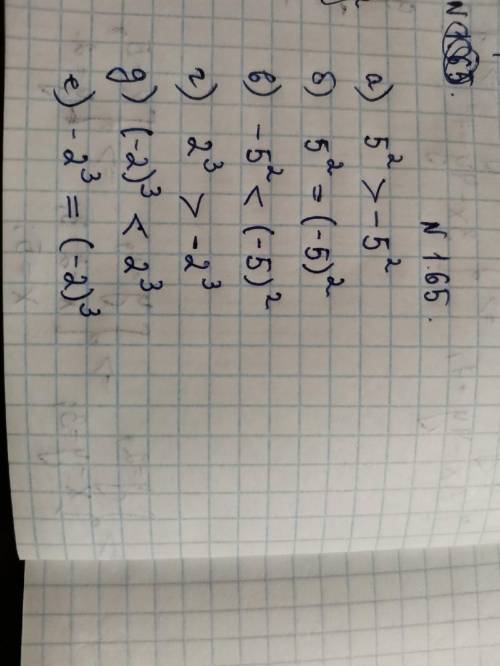 N 1.65.
а) 5² > -5²
б) 5² = (-5)²
в) -5² < (-5)²
г) 2³ > -2³
д) (-2)³ < 2³
е) -2³ = (-2)³